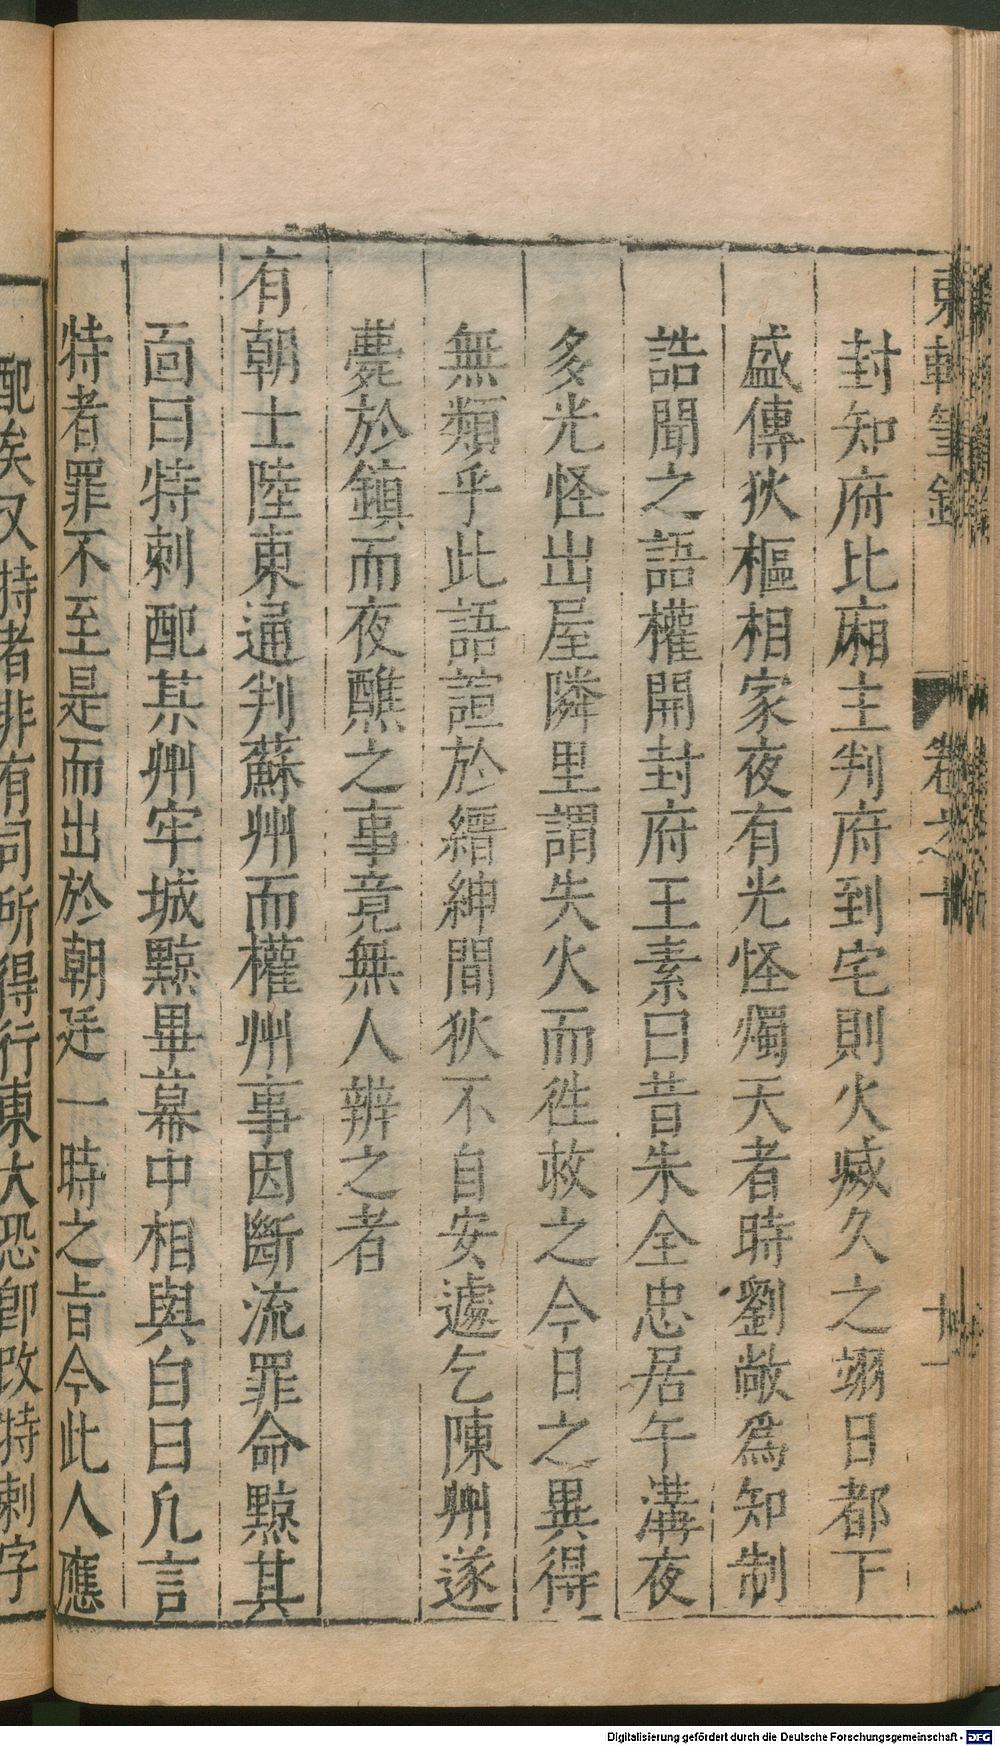 東軒筆錄 卷之十 十一
封知府比廂主判府到宅則火滅久之翊日都下
盛傳狄樞相家夜有光怪燭天者時劉敞爲知制
誥聞之語權開封府王素曰昔朱全忠居午溝夜
多光怪出屋隣里謂失火而徃救之今日之異得
無類乎此語諠於縉紳間狄不自安遽乞陳州遂
薨於鎮而夜醮之事竟無人辨之者
有朝士陸東通判蘇州而權州事因斷流罪命黥其
面曰特刺配某州牢城黥畢幕中相與白曰凡言
特者罪不至是而出於朝廷一時之旨今此人應
配矣又特者非有司所得行東大恐卽改特刺字
Digitalisierung gefördert durch die Deutsche Forschungsgemeinschaft - DFG